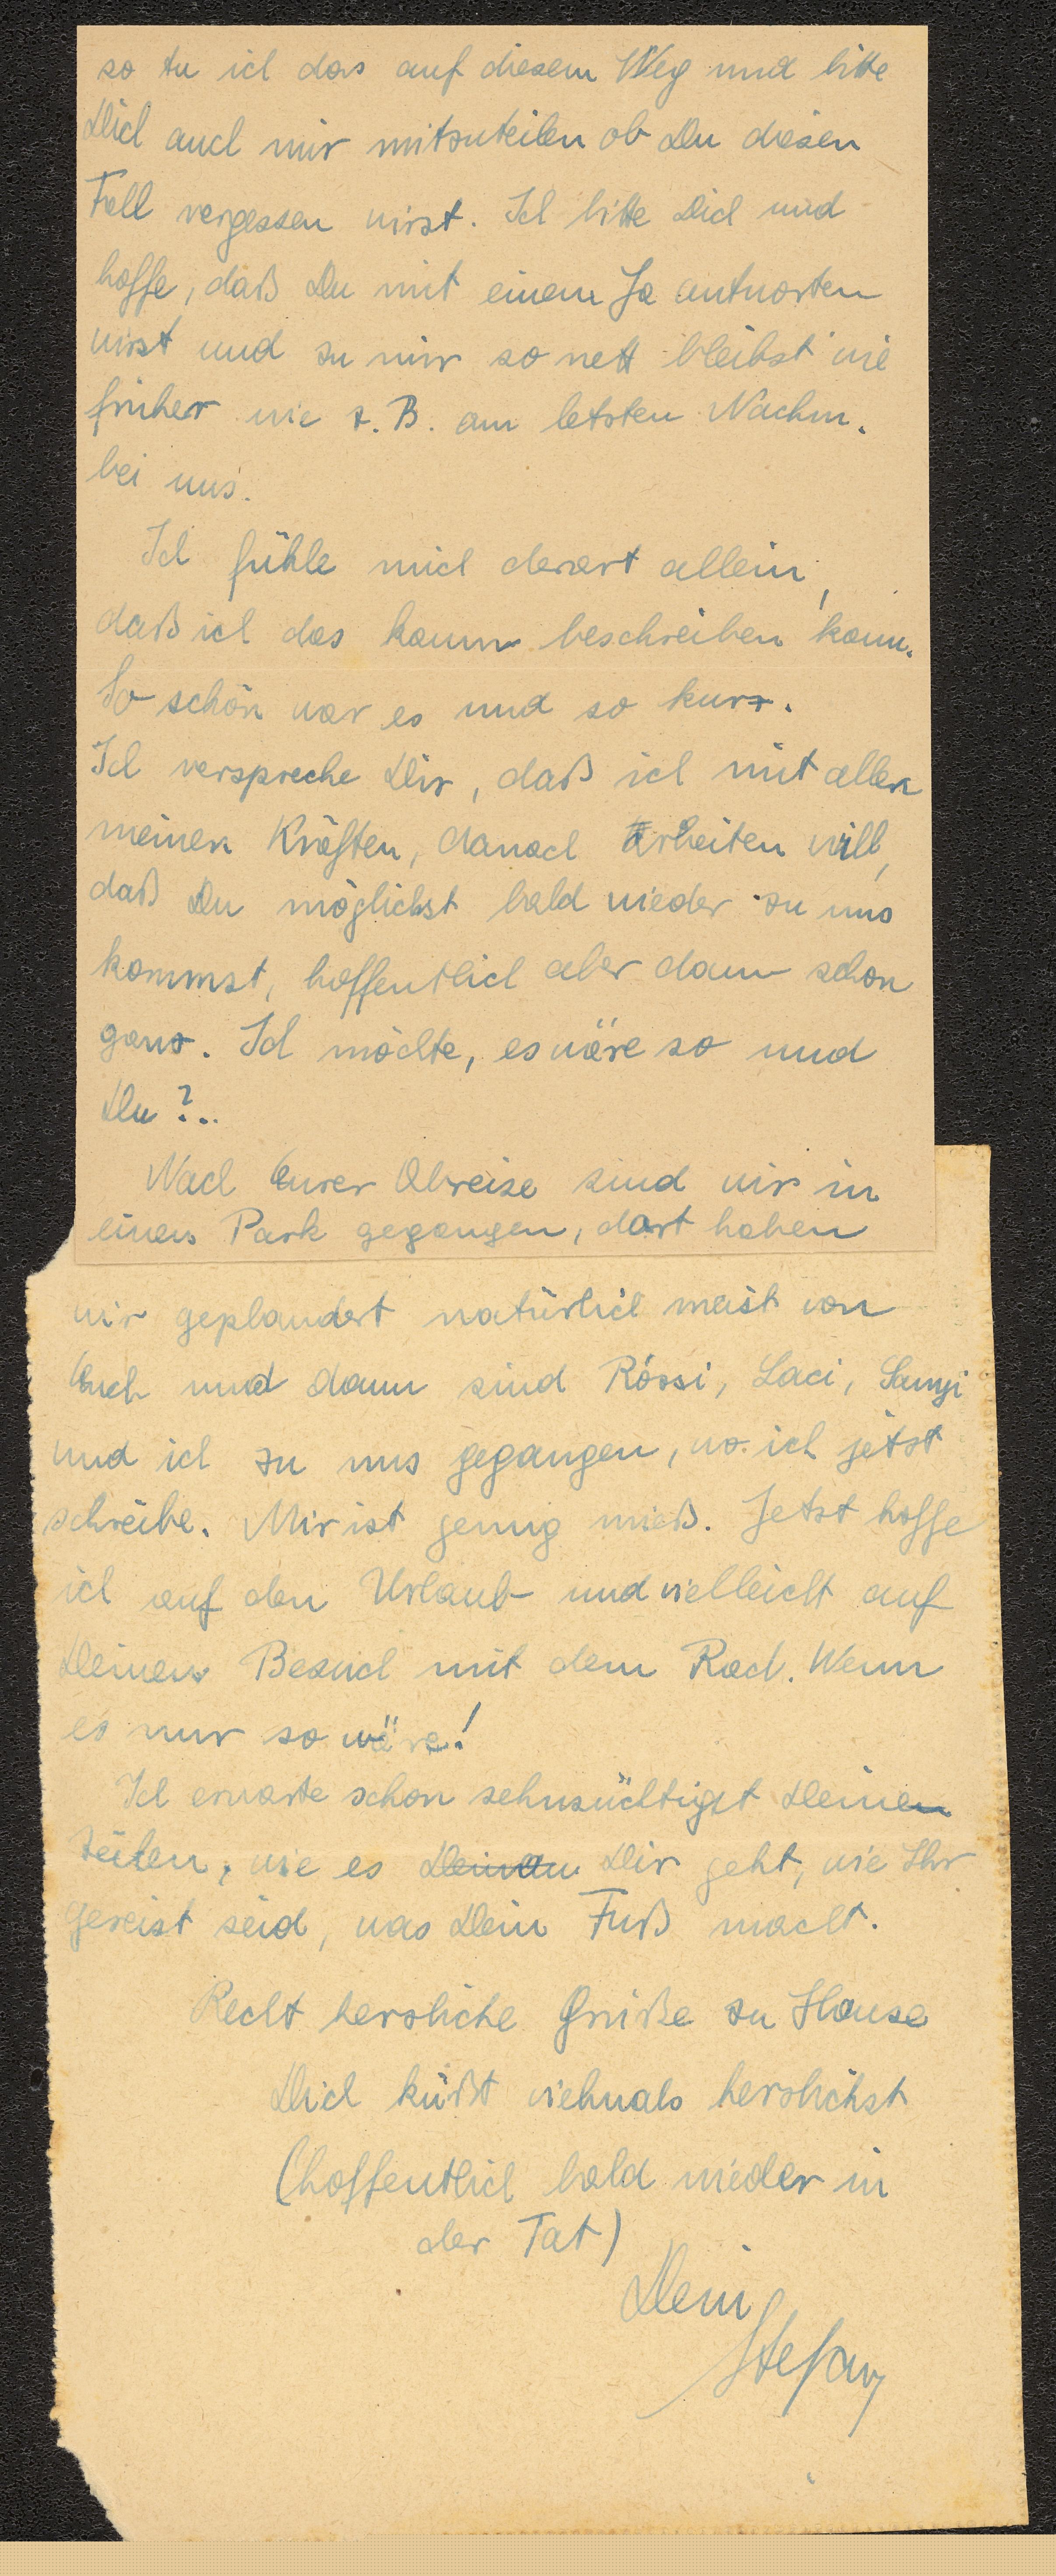 so tu ich das auf diesem Weg und bitte
Dich auch mir mitzuteilen ob Du diesen
Fall vergessen wirst. Ich bitte Dich und
hoffe, daß Du mit einem Ja antworten
wirst und zu mir so nett bleibst wie
früher wie z. B. am letzten Nachm.
bei uns.
Ich fühle mich derart allein,
daß ich das kaum beschreiben kann.
So schön war es und so kurz.
Ich verspreche Dir, daß ich mit allen
meinen Kräften, danach arbeiten will,
daß Du möglichst bald wieder zu uns
kommst, hoffentlich aber dann schon
ganz. Ich möchte, es wäre so und
Du ?..
Nach Eurer Abreise sind wir in
einen Park gegangen, dort haben
wir geplaudert natürlich meist von
Euch und dann sind Róssi, Laci, Sanyi
und ich zu uns gegangen, wo ich jetzt
schreibe. Mir ist genug mieß. Jetzt hoffe
ich auf den Urlaub und vielleicht auf
Deinen Besuch mit dem Rad. Wenn
es nur so wäre!
Ich erwarte schon sehnsüchtigst Deine
Zeilen, wie es Deinem Dir geht, wie Ihr
gereist seid, was Dein Fuß macht.
Recht herzliche Grüße zu Hause
Dich küßt vielmals herzlichst
(hoffentlich bald wieder in
der Tat)
Dein
Stefan